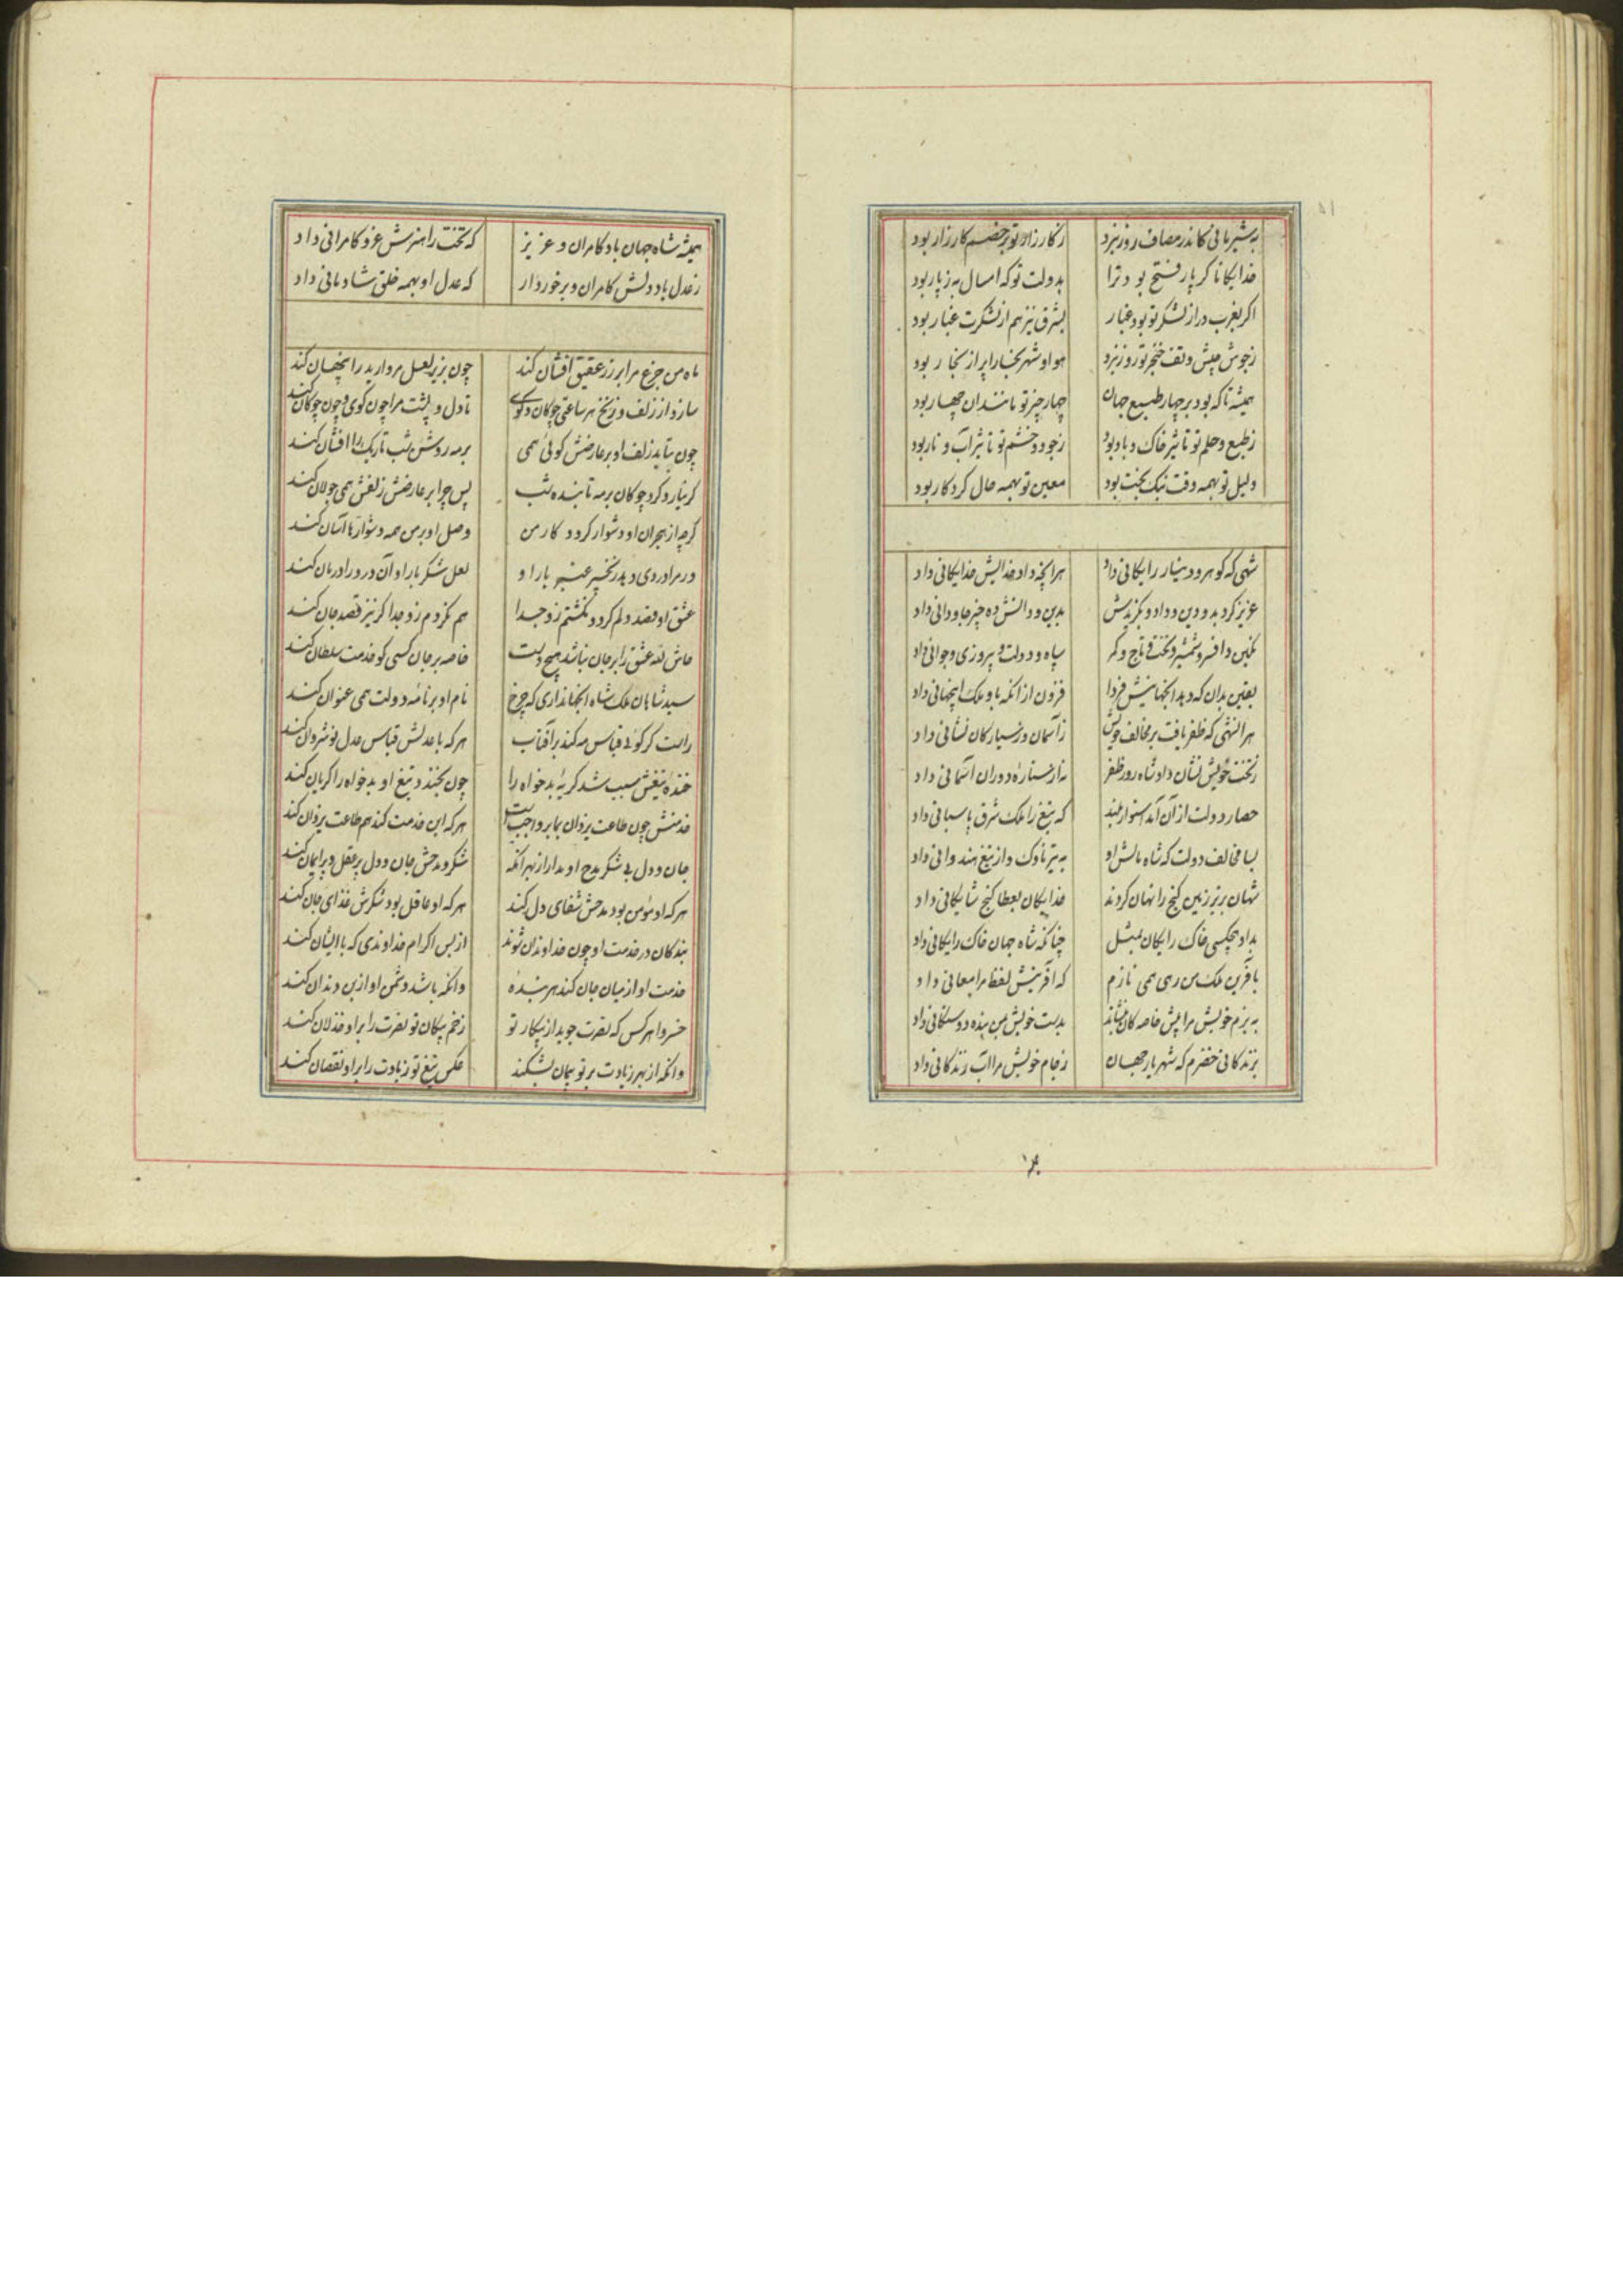 ۵۱
به شیر مانی کاندر مصاف روز نبرد ز کارزار تو بر خصم کارزار بود
خدایگانا کر پار فتح بود ترا بدولت تو که امسال به ز پار بود
اکر بغرب دراز لشکر تو بود غبار بشرق نیز هم از لشکرت غبار بود
ز جوش جیش و تف خنجر تو روز نبرد هوا و شهر بخارا پر از بخار بود
همیشه تا که بود بر چهار طبع جهان چهار چیز تو مانند آن چهار بود
ز طبع و حلم تو تاثیر خاک و باد بود ز جود و خشم تو تاثیر آب و نار بود
دلیل تو بهمه وقت نیک بخت بود معین تو بهمه حال کردکار بود
شهی که کوهر و دینار رایکانی داد هرانچه داد خدایش خدایکانی داد
عزیز کرد بدو دین و داد و بکزیدش بدین و دانش ده چیز جاودانی داد
نکین و افسر و شمشیر و تخت و تاج و کمر سپاه و دولت و پیروزی و جوانی داد
یقین بدان که دهد انجهانیش فردا فزون از انکه باو ملک اینجهانی داد
هر انشهی که ظفر یافت بر مخالف خویش ز آسمان و ز سیارکان نشانی داد
ز تخت خویش نشان داد شاه روز ظفر نه از ستاره و دوران آسمانی داد
حصار دولت از آن آمد استوار و بلند که تیغ را ملک شرق پاسبانی داد
بسا مخالف دولت که شاه مالش او به تیر ناوک و از تیغ هندوانی داد
شهان بزیر زمین کنج را نهان کردند خدایکان بعطا کنج شایکانی داد
بداد هیچکسی خاک رایکان بمثل چنانکه شاه جهان خاک رایکانی داد
بآفرین ملک من رهی همی نازم که آفرینش لفظ مرا معانی داد
به بزم خویش مرا پیش خاصکان بنشاند بدست خویش بمن بنده دوستکانی داد
بزندکانی خضرم که شهریار جهان ز جام خویش مرا آب زندکانی داد
همیشه شاه جهان باد کامران و عزیز که تخت را هنرش عز و کامرانی داد
ز عدل باد دلش کامران و برخوردار که عدل او بهمه خلق شادمانی داد
ماه من جزع مرا بر زر عقیق افشان کند چون بزیر لعل مروارید را پنهان کند
سازد از زلف و زنخ هر ساعتی چوکان و کوی تا دل و پشت مرا چون کوی و چون چوکان کند
چون بتابد زلف او بر عارضش کوئی همی بر مه روشن شب تاریک را افشان کند
کر نیارد کرد چوکان بر مه تابنده شب پس چرا بر عارضش زلفش همی جولان کند
کرچه از هجران او دشوار کردد کار من وصل او بر من همه دشوارها آسان کند
ور مرا دردی دهد زنجیر عنبر بار او لعل شکر بار او آن درد را درمان کند
عشق او قصد دلم کرد و نکشتم زو جدا هم نکردم زو جدا کر نیز قصد جان کند
حاش لله عشق را بر جان نباشد هیچ دست خاصه بر جان کسی کو خدمت سلطان کند
سید شاهان ملکشاه انجهانداری که چرخ نام او بر نامه دولت همی عنوان کند
راست کوئی قیاس مه کند بر آفتاب هر که با عدلش قیاس عدل نوشروان کند
خنده تیغش سبب شد کریه بدخواه را چون بخندد تیغ او بدخواه را کریان کند
خدمتش چون طاعت یزدان بما بر واجب است هر که این خدمت کند هم طاعت یزدان کند
جان و دل بی شکر و مدح او مدار از بهر انکه شکر و مدحش جان و دل پر عقل و پر ایمان کند
هر که او مؤمن بود مدحش شفای دل کند هر که او عاقل بود شکرش غذای جان کند
بندکان در خدمت او چون خداوندان شوند از بس اکرام خداوندی که با ایشان کند
خدمت او از میان جان کند هر بنده وانکه باشد دشمن او از بن دندان کند
خسروا هر کس که نصرت جوید از پیکار تو زخم پیکان تو نصرت را بر او خذلان کند
وانکه از بهر زیادت بر تو پیمان بشکند عکس تیغ تو زیادت را بر او نقصان کند